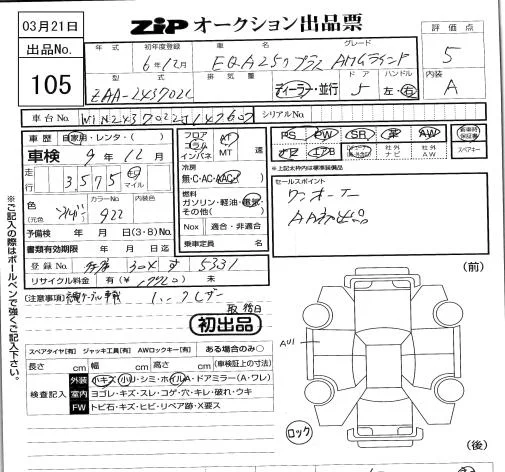 03月21日
ZIP オークション出品票
出品No.
105
年式 初年度登録 車名 グレード
6年12月 EQA250プラス AMGライン
評価点
5
内装
A
型式 排気量 ドア ハンドル
ZAA-243702C ディーラー・並行 5 左・右
車台No. W1N2437022J147607 シリアルNo.
車歴 自家用・レンタ・( )
車検 9年12月
走行 3,575 Km マイル
色 (元色 カラーNo. 922 内装色
予備検 年 月 日(3・8)No.
書類有効期限 年 月 日迄
登録No. 304 す 5331
リサイクル料金 有(¥ ) 未
(注意事項)
フロア コラム インパネ AT MT 速
冷房 無・C・AC・AAC
燃料 ガソリン・軽油・電気・その他( )
Nox 適合・非適合
乗車定員 名
PS PW SR 革 AW
ナビ AW
新車時保証書
スペアキー
*上記太枠内は標準装備品
セールスポイント
ワンオーナー
AA初出品
取 記 日
初出品
スペアタイヤ[有] ジャッキ工具[有] AWロックキー[有] ある場合のみ○
長さ cm 幅 cm 高さ cm (車検証上の寸法)
検査記入
外装 小キズ・小U・シミ・ホイルA・ドアミラー(A・ワレ)
室内 ヨゴレ・キズ・スレ・コゲ・穴・キレ・破れ・ウキ
FW トビ石・キズ・ヒビ・リペア跡・X要ス
(前)
AU1
ロック
(後)
※ご記入の際はボールペンで強くご記入下さい。